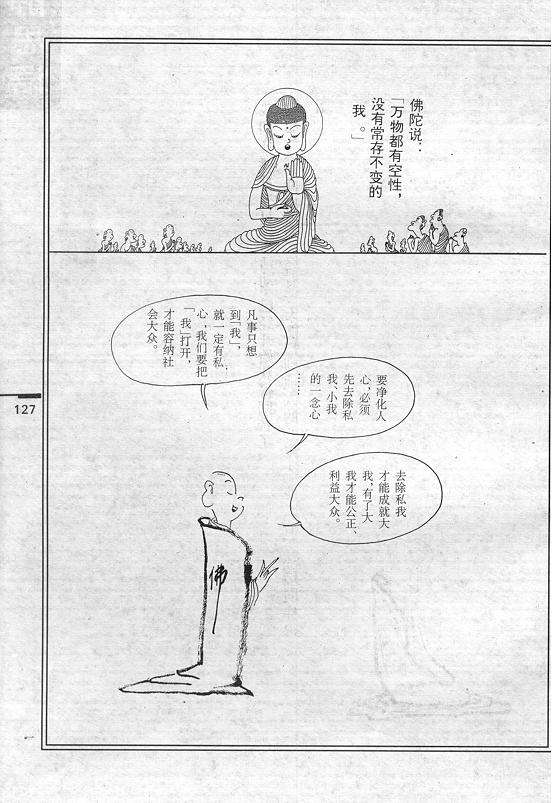 佛陀说：
「万物都有空性，
没有常存不变的
我。」
凡事只想
到「我」，
就一定有私
心，我们要把
「我」打开，
才能容纳社
会大众。
要净化人
心，必须
先去除私
我、小我
的一念心
……
去除私我
才能成就大
我，有了大
我才能公正、
利益大众。
佛
127